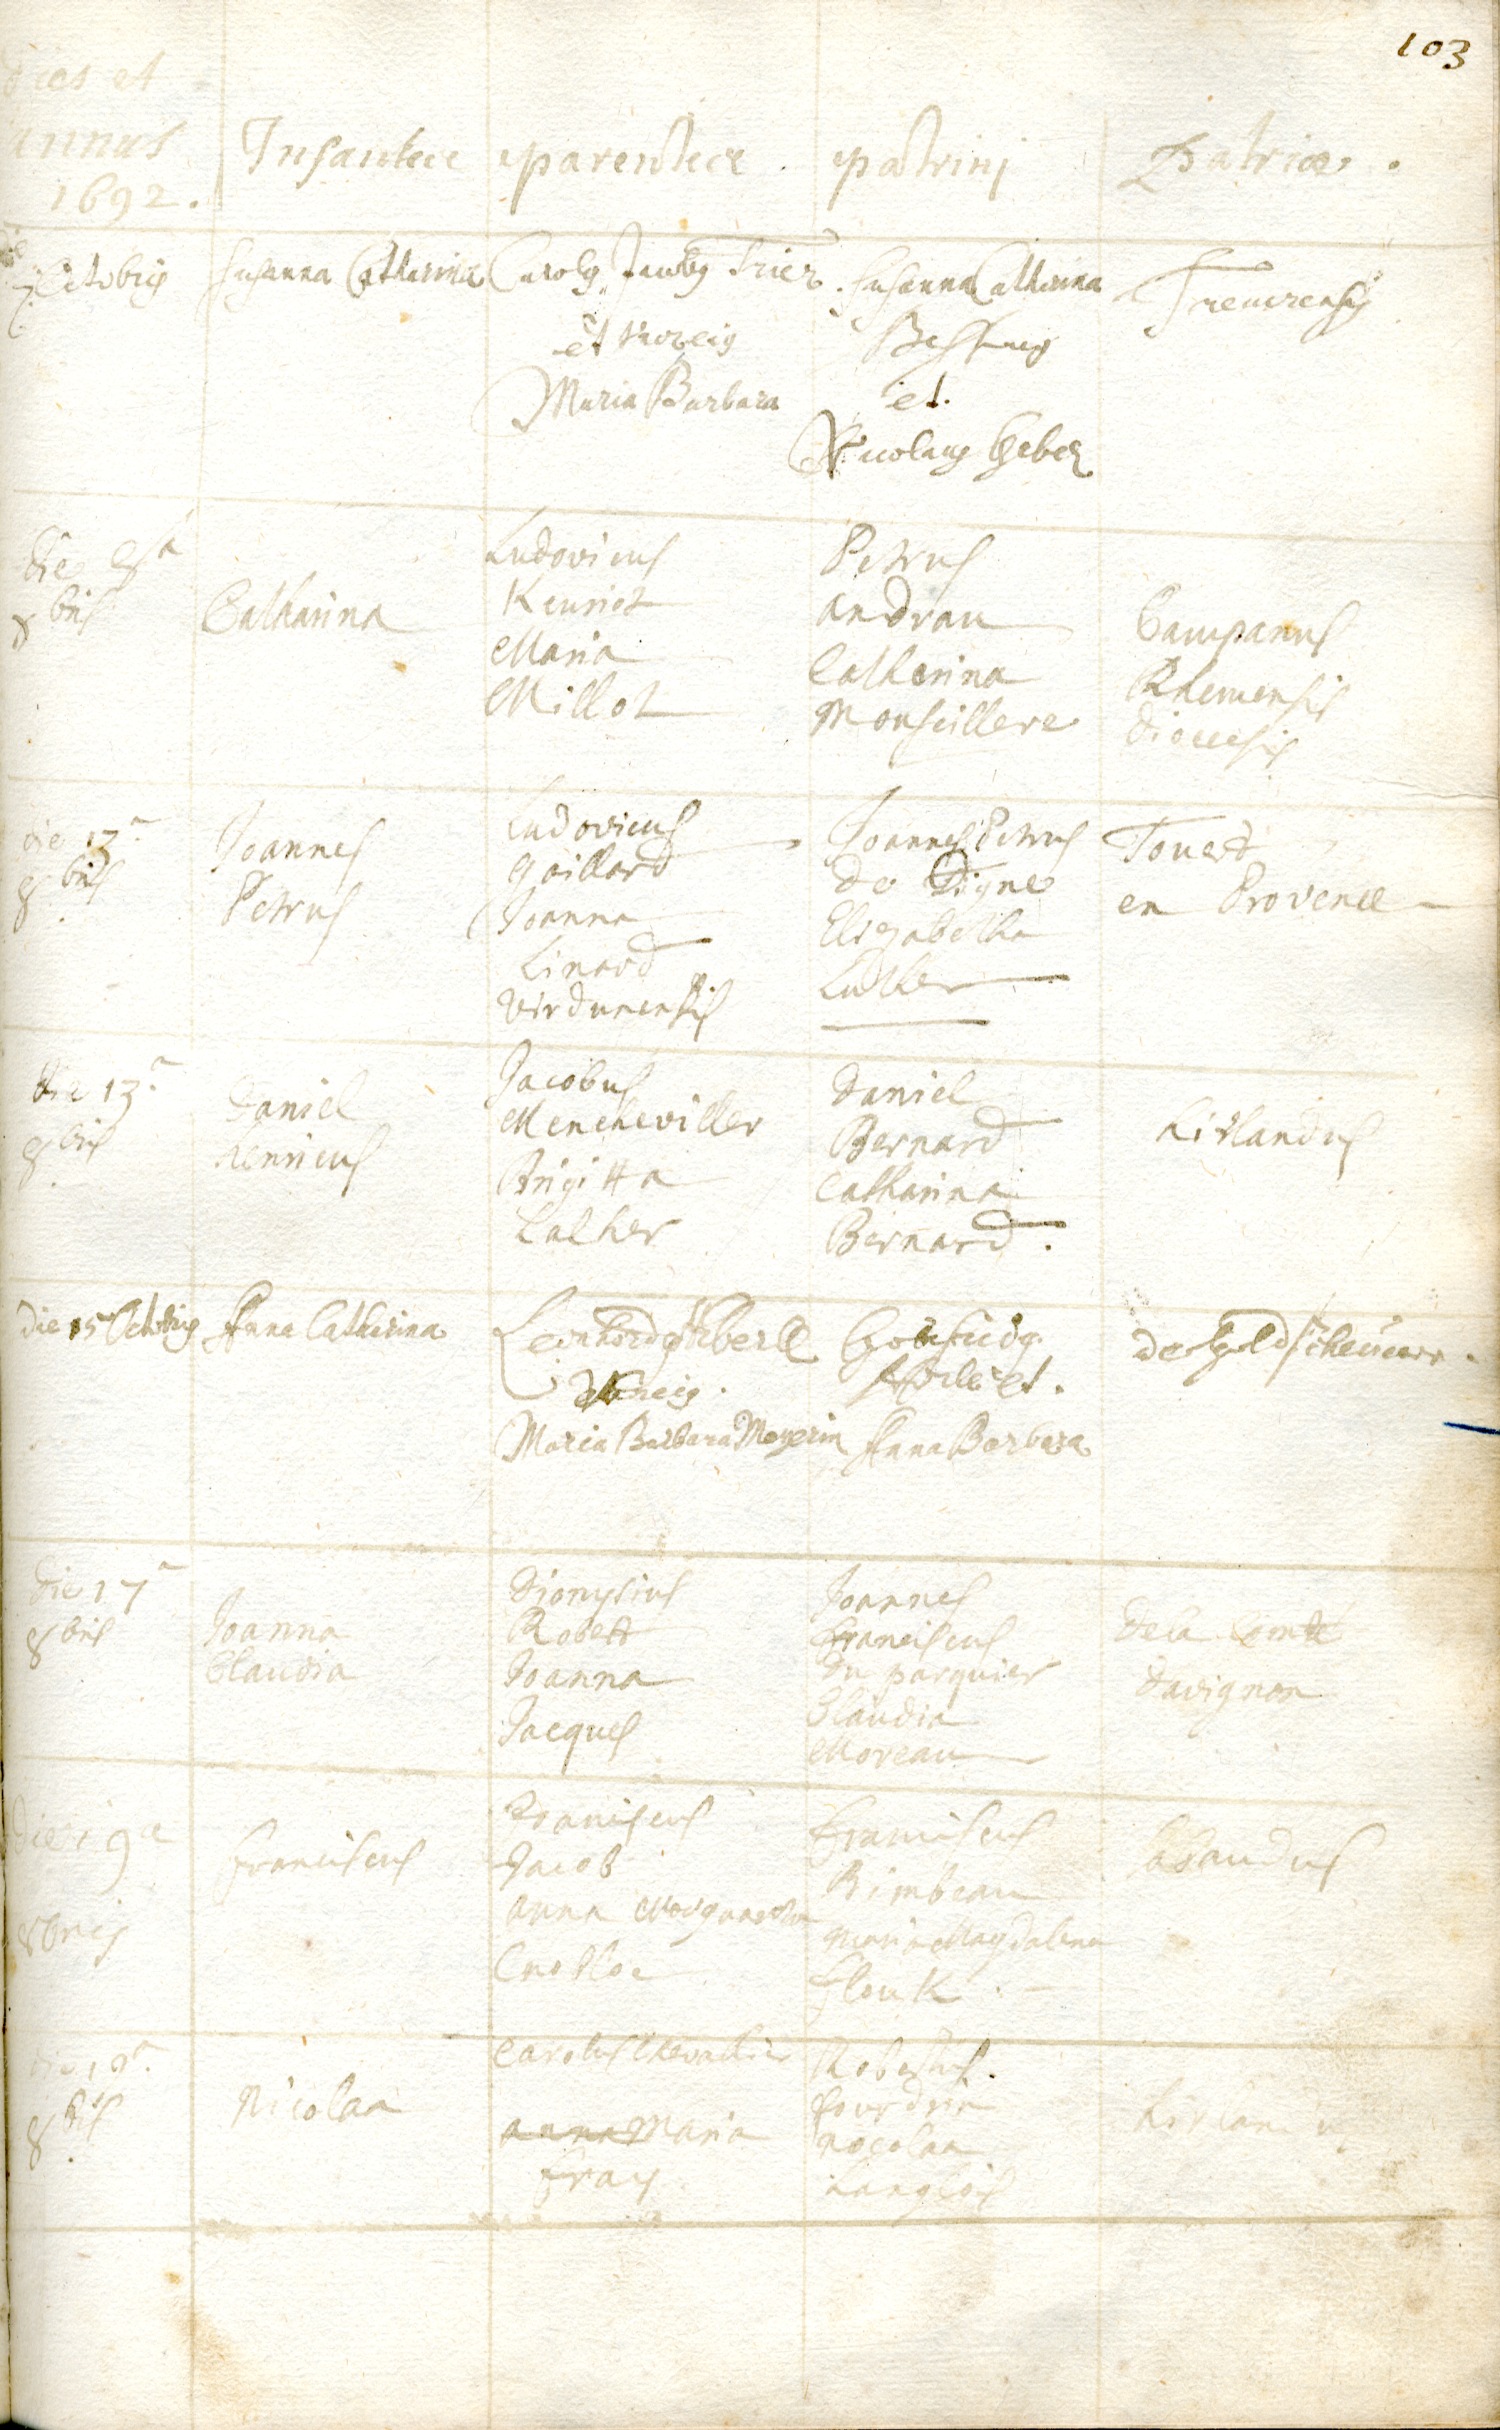 103
dies et
annus
1692.
Infantece parentece. patrinj Patriæ.
die
7 Octobris
Susanna Catharina
Carolg Jacobg Trier
et uxor eig
Maria Barbara
Susanna Catharina
et.
Nicolaug Geber
Treuerensis
die 8a
8bris
Catharina
Ludovicus
Henriot
Maria
Millot
Petrus
andrau
Catherina
Monseillere
Campanus
Rhemensis
dioecesis
die 13a
8bris
Joannes
Petrus
Ludovicus
gaillard
Joanna
Linard
virdunensis
Joannes Petrus
de Digne
Elizabetha
Luther
Touert
en Provence
die 13a
8bris
Daniel
henricus
Jacobus
Mencheviller
Brigitta
Lalher
Daniel
Bernard
Catharina
Bernard.
Lirlandus
die 15 Octobris
Anna Catharina
Leonhardg Eberle
Maria Barbara Meyerin
Anna Barbara
de goldscheuer.
die 17a
8bris
Joanna
Claudia
Dionysius
Robert
Joanna
Jacques
Joannes
franciscus
du parquier
Claudia
Moreau
dela Comté
davignon
die 19a
8bris
franciscus
Franciscus
Jacob
anna
Franciscus
Rimbeau
Maria Magdalena
flouk.
die 19a.
8bris
Nicolaa
Carolus Chevallier
anna Maria
fray
Robertus.
fourdrin
nicolaa
Langlois